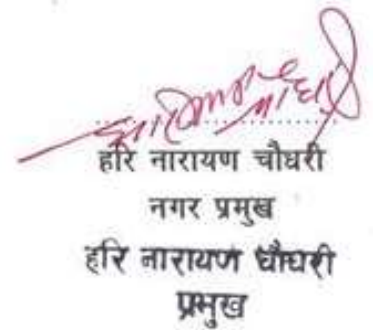 हरि नारायण चौधरी
नगर प्रमुख
हरि नारायण चौधरी
प्रमुख